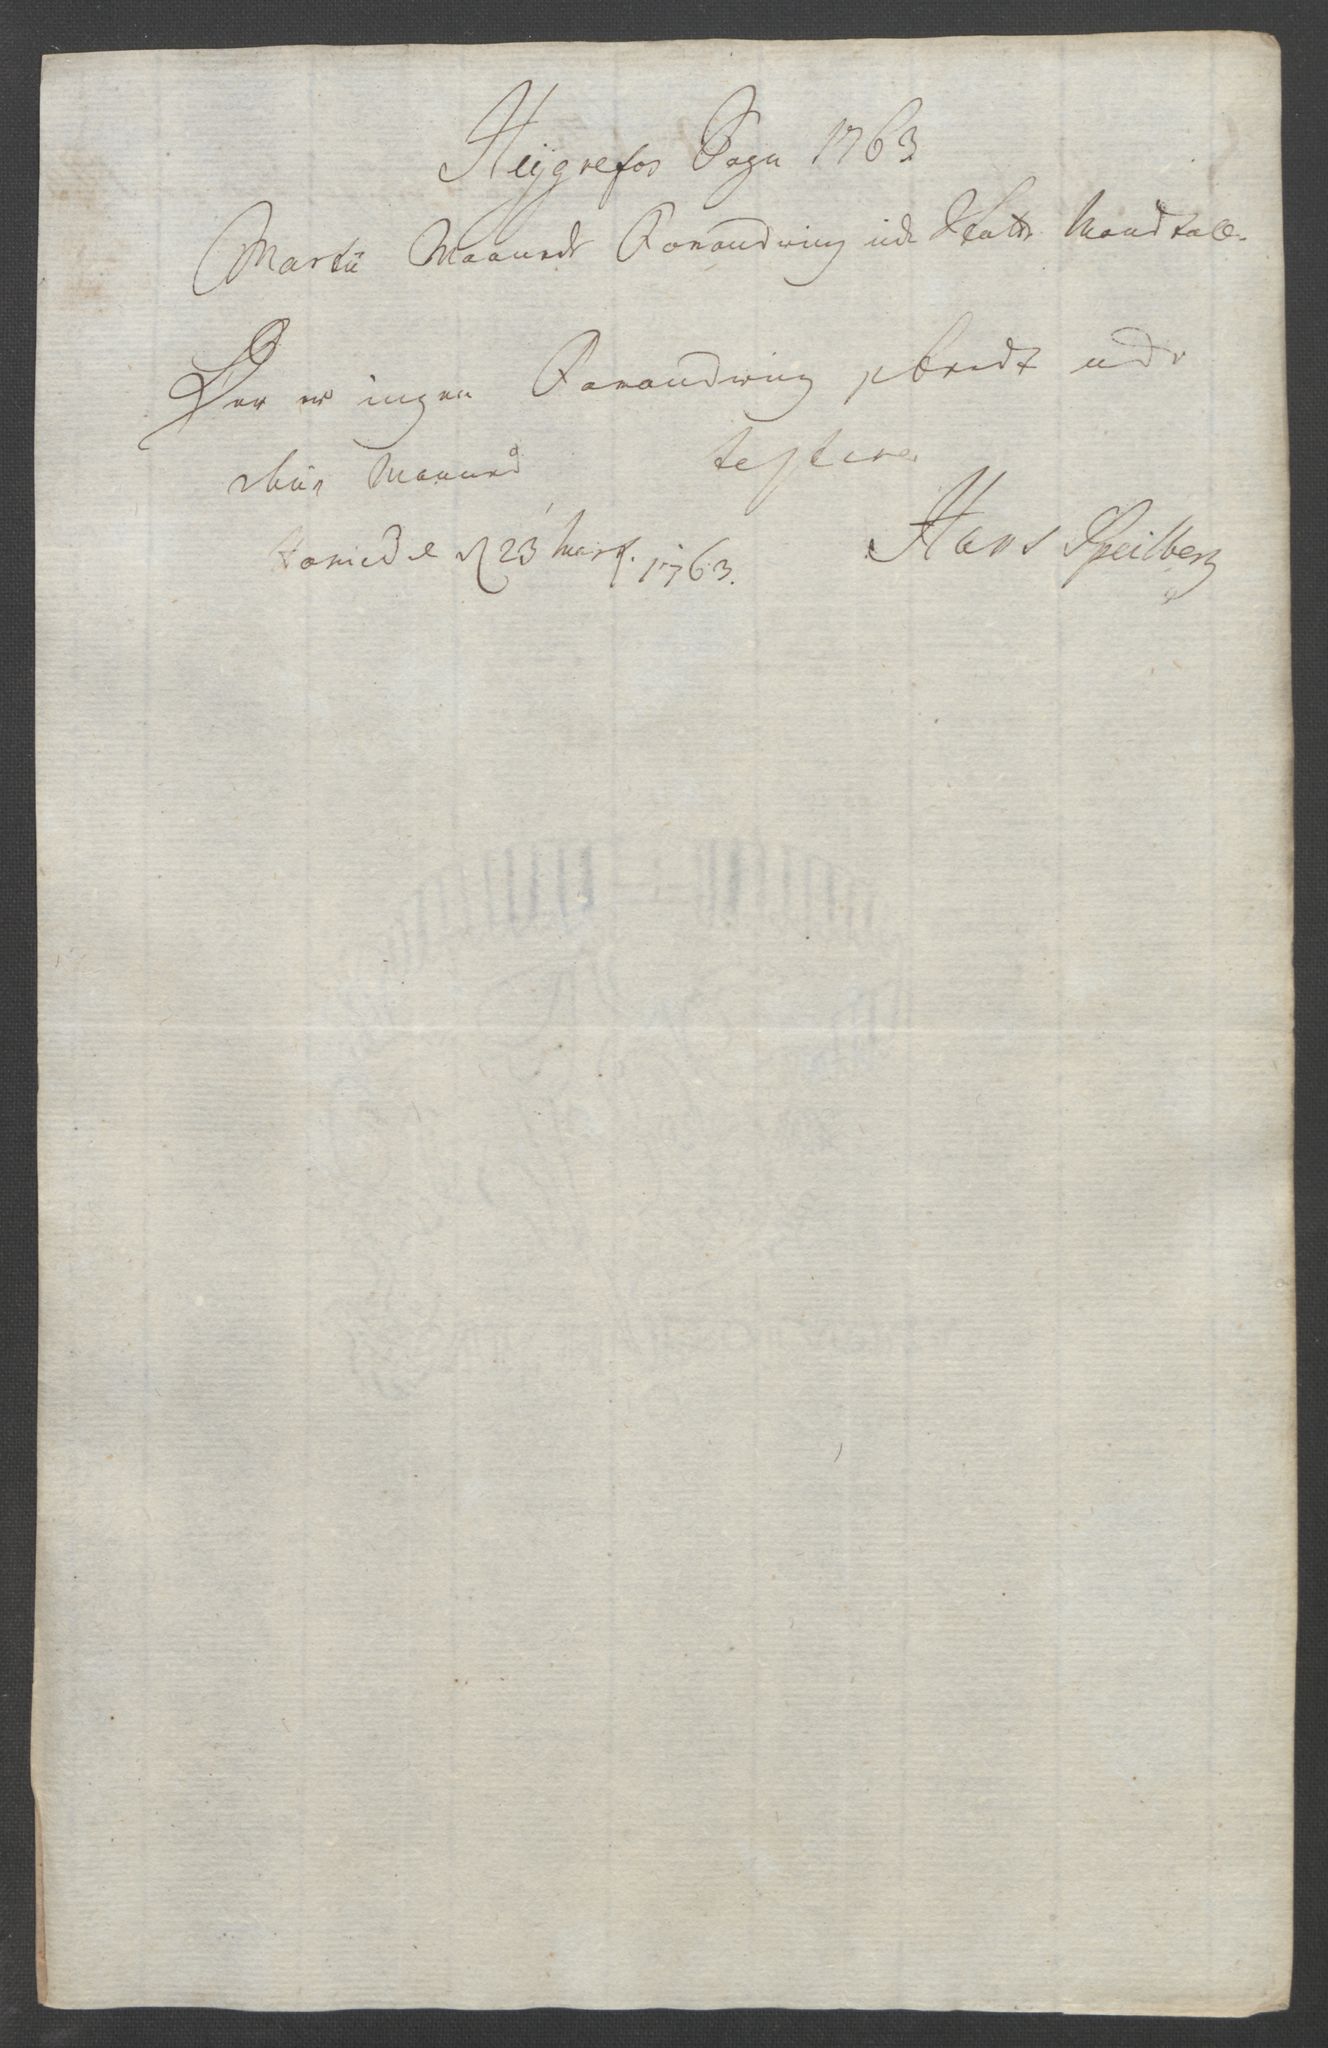 Heÿgrefos Sogn 1763
Martii Maaneds Forandring udi Skatte Mandtallet
Der er ingen Forandring skeedt udi
denne Maaned testerer
d 23 Mart. 1763. Hans Speilberg